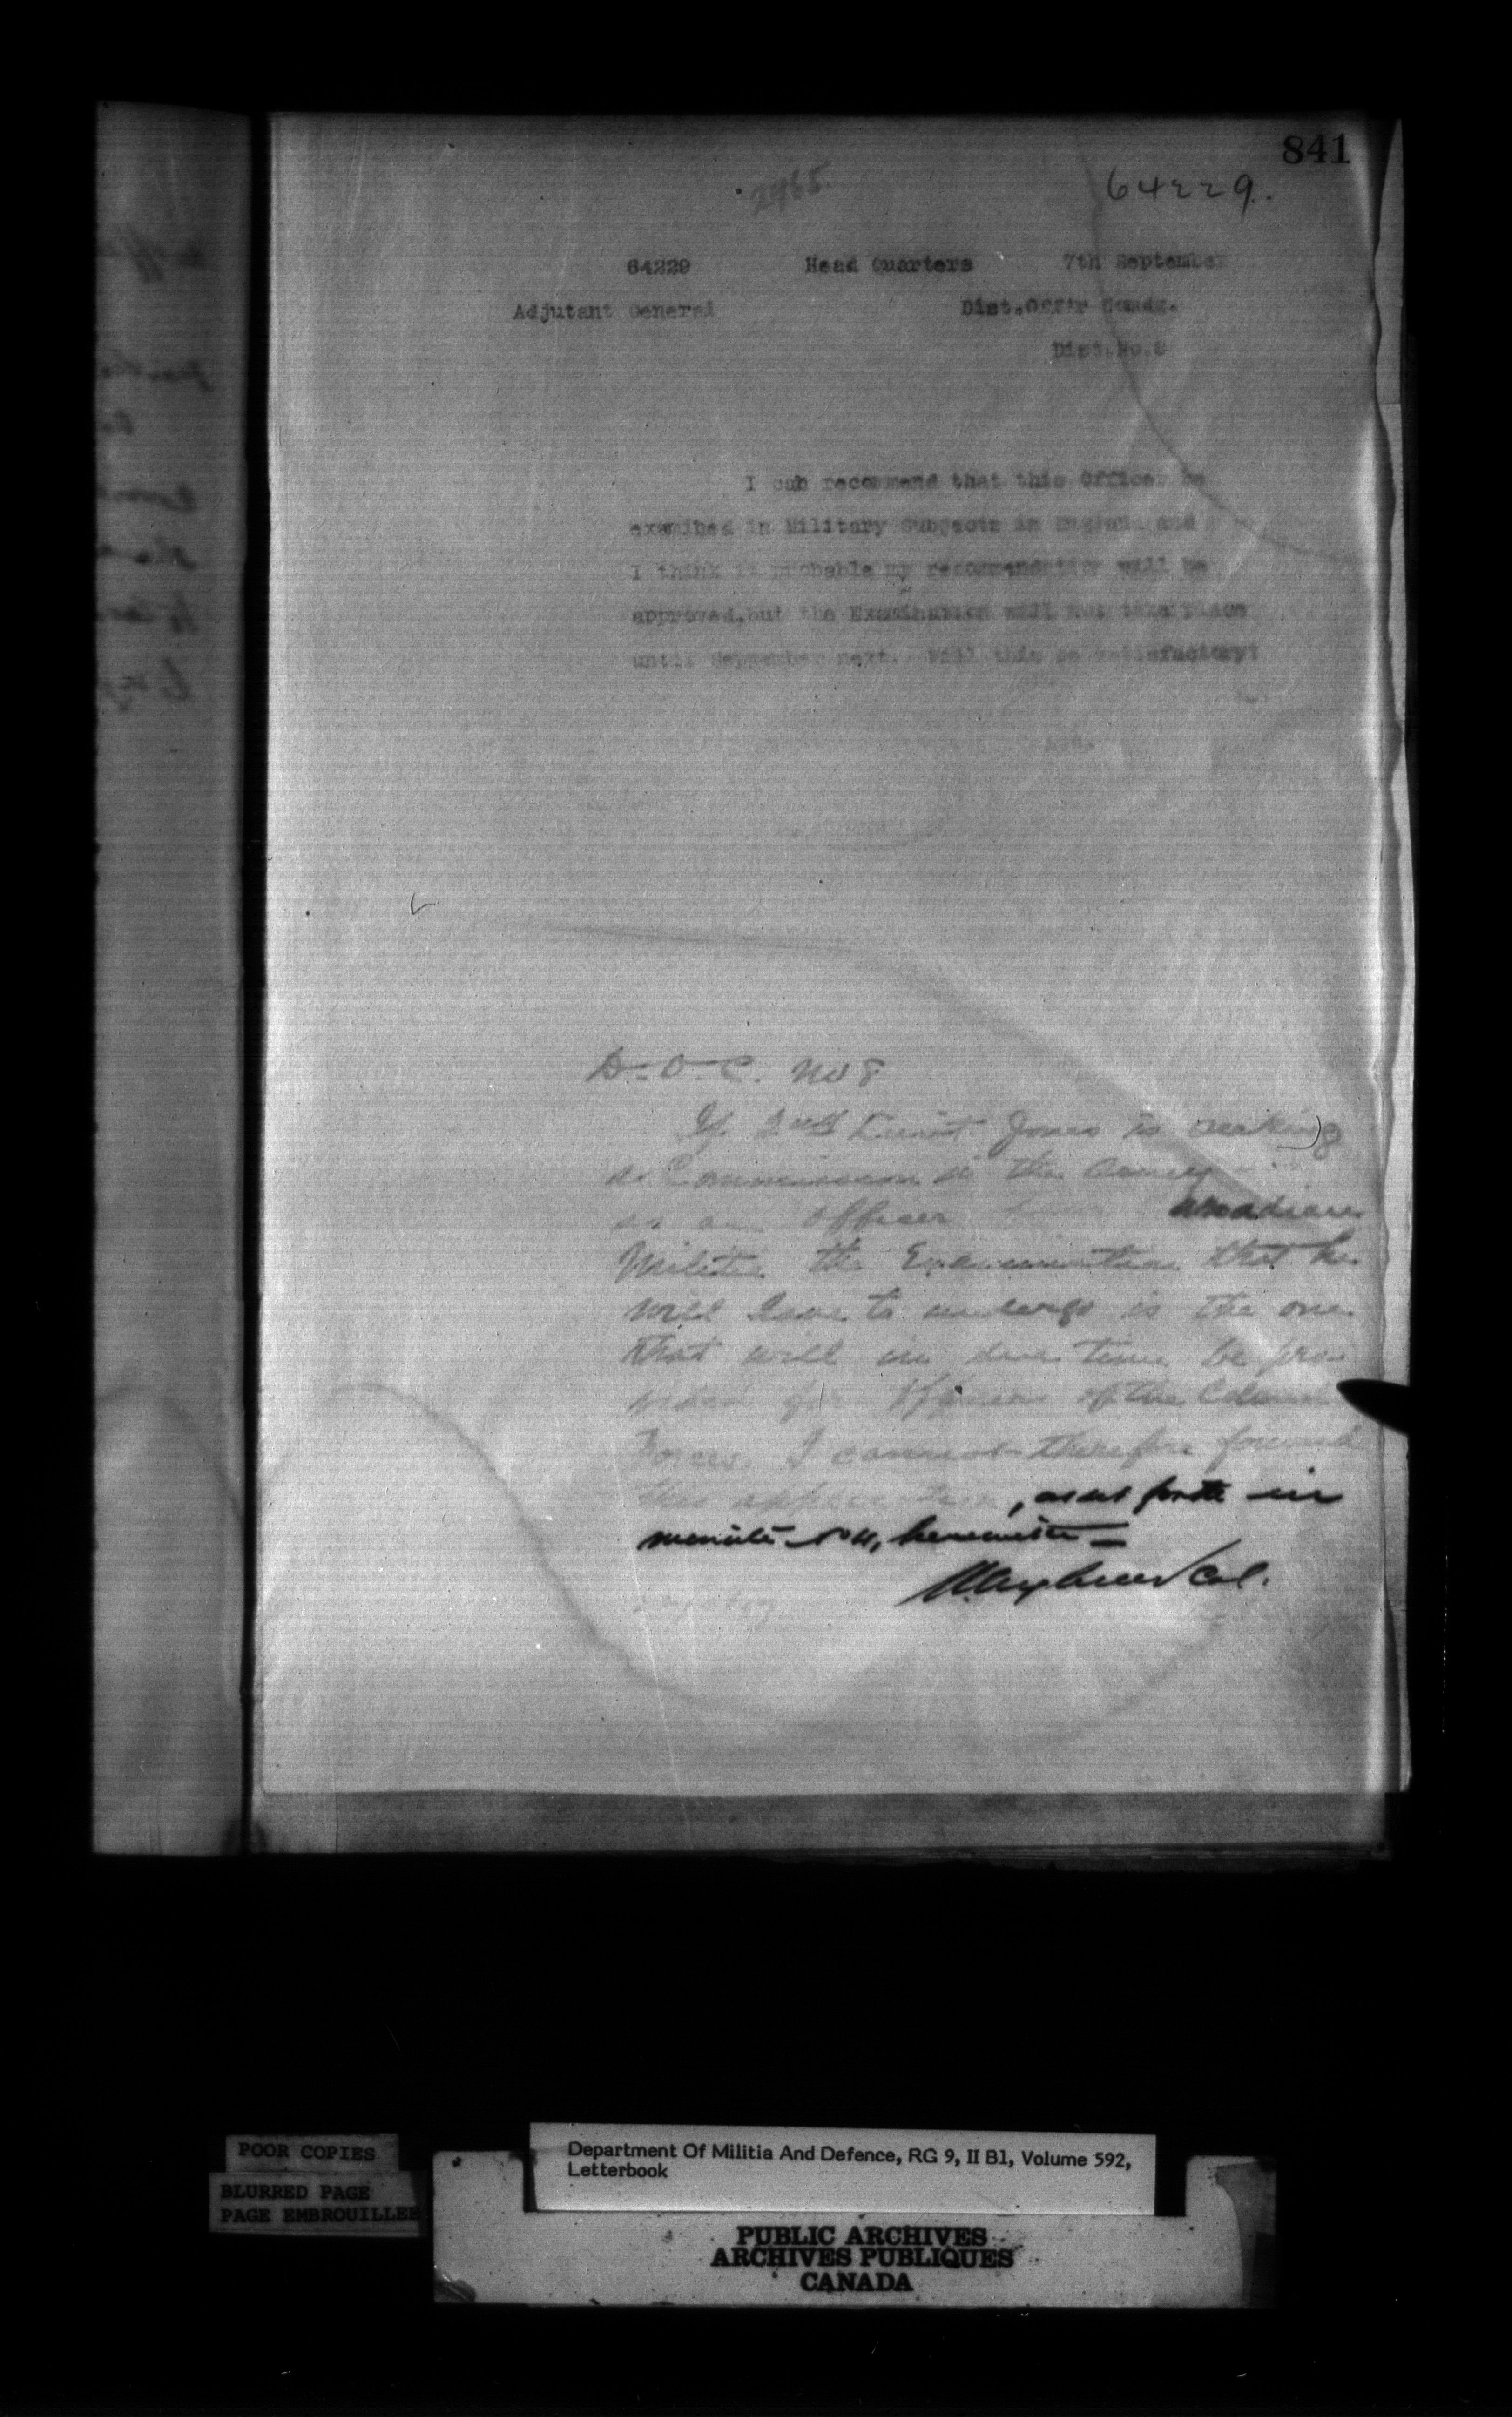 841
2965.
64229.
64229 Head Quarters 7th September
Adjutant General Dist.Off'r Comdg.
Dist.No.8
I cab recommend that this Officer be
examibed in Military Subjects in England and
I think it probable my recommendation will be
approved,but the Examination will not take place
until September next. Will this be satisfactory?
D.O.C. No 8
If 2nd Lieut. Jones is seeking
a Commission in the Army
as an Officer Canadian
Militia the Examination that he
will have to undergo is the one
that will in due time be pro-
vided for Officers of the Colonial
Forces. I cannot therefore forward
this application, as set forth in
minute herewith
Col.
POOR COPIES
BLURRED PAGE
PAGE EMBROUILLEE
Department Of Militia And Defence, RG 9, II B1, Volume 592,
Letterbook
PUBLIC ARCHIVES
ARCHIVES PUBLIQUES
CANADA